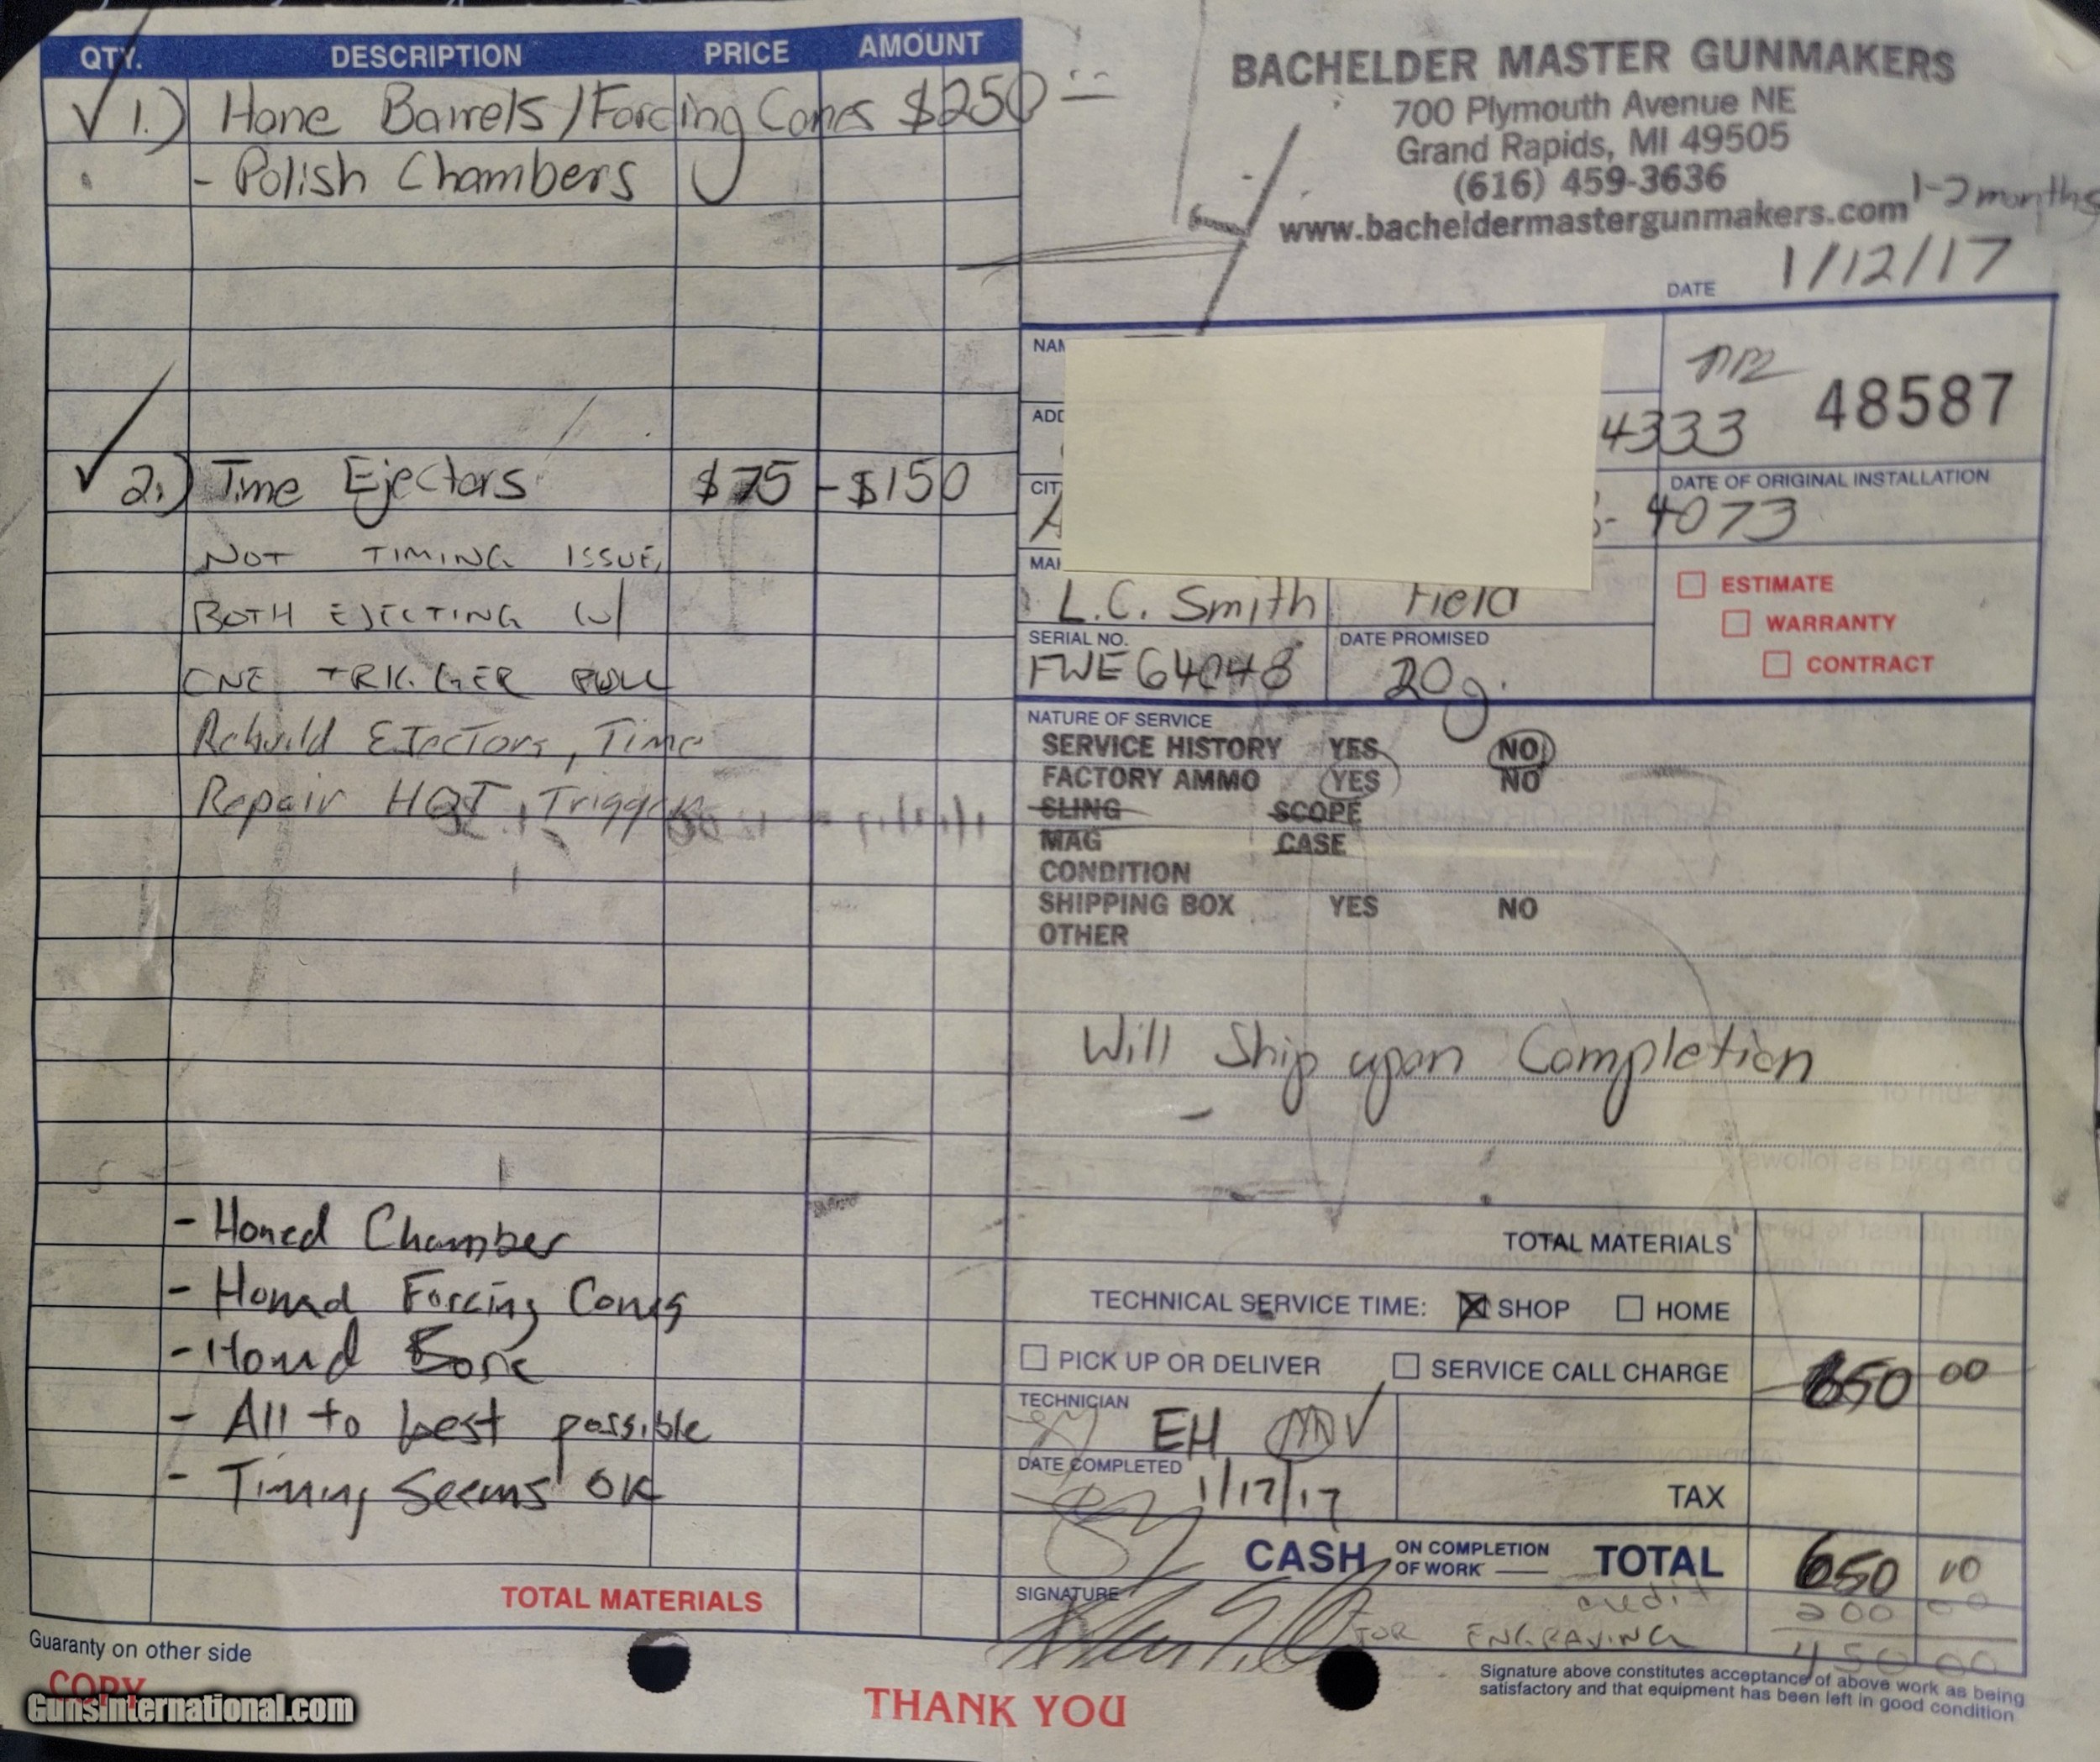 QTY. DESCRIPTION PRICE AMOUNT
1.) Hone Barrels/Forcing Cones $250
- Polish Chambers
2.) Time Ejectors $75 - $150
NOT TIMING ISSUE,
BOTH EJECTING W/
ONE TRIGGER PULL
Rebuild Ejectors, Time
Repair HOT, Trigger
- Honed Chamber
- Honed Forcing Cones
- Honed Bore
- All to best possible
- Timing Seems OK
TOTAL MATERIALS
Guaranty on other side
COPY
GunsInternational.com
THANK YOU
BACHELDER MASTER GUNMAKERS
700 Plymouth Avenue NE
Grand Rapids, MI 49505
(616) 459-3636
www.bacheldermastergunmakers.com
1-2 months
DATE 1/12/17
48587
4333
DATE OF ORIGINAL INSTALLATION
4073
L.C. Smith Field
ESTIMATE
WARRANTY
CONTRACT
SERIAL NO. DATE PROMISED
FWE64048 20g.
NATURE OF SERVICE
SERVICE HISTORY YES NO
FACTORY AMMO YES NO
SLING SCOPE
MAG CASE
CONDITION
SHIPPING BOX YES NO
OTHER
Will Ship upon Completion
TOTAL MATERIALS
TECHNICAL SERVICE TIME: SHOP HOME
PICK UP OR DELIVER SERVICE CALL CHARGE 650 00
TECHNICIAN
EH
DATE COMPLETED
1/17/17
TAX
CASH ON COMPLETION OF WORK TOTAL 650 00
credit 200 00
SIGNATURE
FOR ENGRAVING 450 00
Signature above constitutes acceptance of above work as being
satisfactory and that equipment has been left in good condition